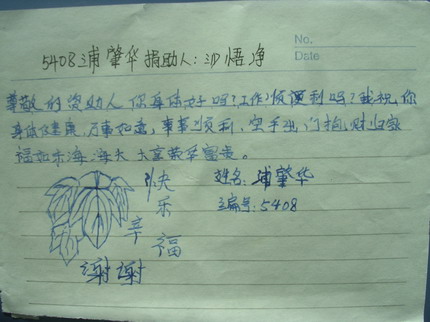 No.
Date
5408浦肇华捐助人:沙悟净
尊敬的资助人你身体好吗?工作顺利吗?我祝你
身体健康,万事如意,事事顺利,空手出门抱财归家
福如东海海大 大享荣华富贵。
快乐
幸福
谢谢
姓名:浦肇华
编号:5408